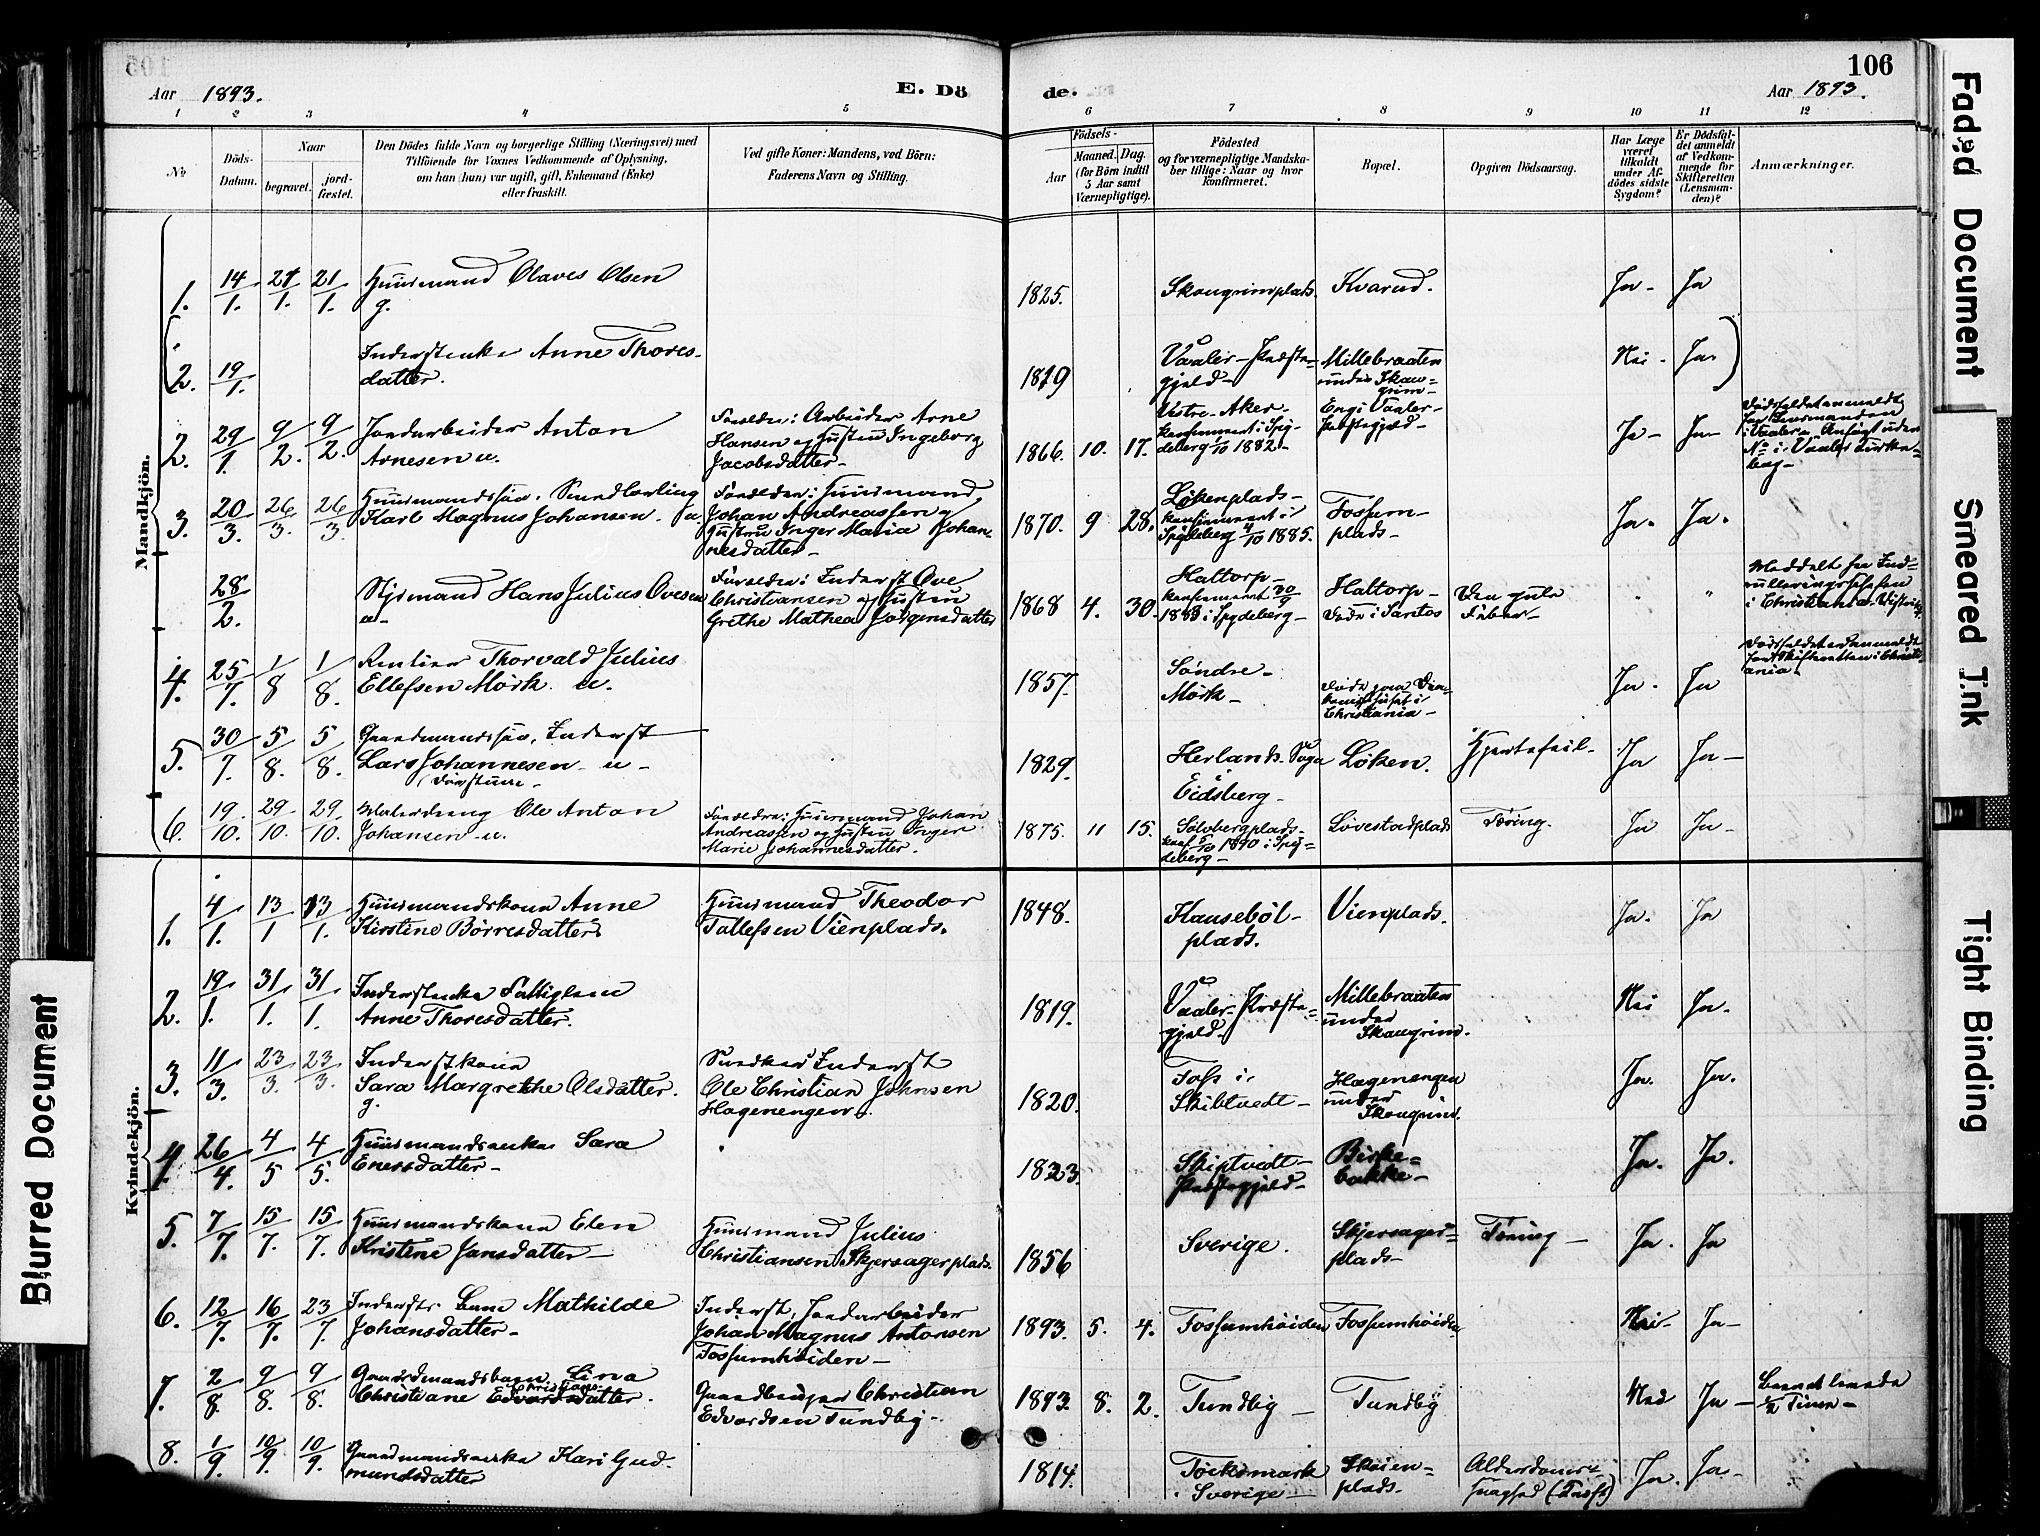 106
Aar 1893.
E. Dö
de.
Aar 1893.
1 2 3 4 5 6 7 8 9 10 11 12
No
Döds-
Datum.
Naar
begravet.
jord-
fæstet.
Den Dödes fulde Navn og borgerlige Stilling (Næringsvei) med
Tilföiende for Voxnes Vedkommende af Oplysning,
om han (hun) var ugift, gift, Enkemand (Enke)
eller fraskilt.
Ved gifte Koner: Mandens, ved Börn:
Faderens Navn og Stilling.
Födsels-
Aar
Maaned. Dag.
(for Börn indtil
5 Aar samt
Værnepligtige).
Födested
og for værnepligtige Mandska-
ber tillige: Naar og hvor
konfirmeret.
Bopæl.
Opgiven Dödsaarsag.
Har Læge
været
tilkaldt
under Af-
dödes sidste
Sygdom?
Er Dödsfal-
det anmeldt
af Vedkom-
mende for
Skifteretten
(Lensman-
den)?
Anmærkninger.
Mandkjön.
1. 14/1. 21/1. 21/1. Huusmand Olaves Olsen
g.
1825. Skougrimplads. Kvarud. Ja- Ja
2. 19/1. Inderstenke Anne Thores-
datter.
1819 Vaaler-Præste-
gjeld-
Millebraaten
under Skou-
grim-
Nei- Ja-
2. 29/1. 9/2. 9/2. Jordarbeider Anton
Arnesen u.
Forældre: Arbeider Arne
Hansen og Hustru Ingeborg
Jacobsdatter-
1866. 10. 17. Vestre-Aker-
konfirmeret i Spy-
deberg 1882-
Engi Vaaler-
Præstegjeld-
Ja- Ja-
Dødsfaldet anmeldt
for Lensmanden
i Vaaler
3. 20/3. 26/3. 26/3. Huusmandssøn. Smedlærling
Karl Magnus Johansen. u
Forældre: Huusmand
Johan Andreassen og
Hustru Inger Maria Johan-
nesdatter-
1870. 9 28. Løkenplads-
konfirmeret i
Spydeberg 4/10 1885.
Fossum-
plads-
Ja. Ja.
28/2. Styrmand Hans Julius Ovesen
u-
Forældre: Inderst Ove
Christiansen og Hustru
Grethe Mathea Jørgensdatter
1868 4. 30. Hattorp-
konfirmeret 30/9
1883 i Spydeberg-
Hattorp-
Døde i Santos
Den gule
Feber-
Meddelt fra Ind-
rulleringschefen
i Christiania-Distrikt
4. 25/7. 1/8 1/8. Rentier Thorvald Julius
Ellefsen Mörk. u.
1857. Søndre-
Mörk-
Døde paa Dia-
konis Huset i
Christiania-
Ja. Ja
Dødsfaldet er anmeldt
for Skifteretten i Christi-
ania-
5. 30/7. 5/8. 5/8. Gaardmandssøn, Inderst
Lars Johannesen- u-
1829. Herlands-Sogn
i
Eidsberg-
Løken. Hjertefeil- Ja Ja-
6. 19/10. 29/10. 29/10. Malerdreng Ole Anton
Johansen-u.
Forældre: Huusmand Johan
Andreassen og Hustru Inger
Marie Johannesdatter.
1875. 11 15. Solbergplads-
konf. 5/10 1890 i Spy-
deberg-
Løvestadplads Tæring. Ja Ja-
Kvindekjön.
1. 4/1. 13/1 13/1. Huusmandskone Anne
Kirstine Börresdatter
Huusmand Theodor
Tollefsen Vienplads.
1848. Hausebøl-
plads.
Vienplads. Ja. Ja
2. 19/1. 31/1. 31/1. Inderstenke Fattiglem
Anne Thoresdatter.
1819. Vaaler-Præste-
gjeld-
Millebraaten
under
Skougrim.
Nei Ja.
3. 11/3. 23/3. 23/3. Inderstkone
Sara Margrethe Olsdatter.
g.
Smedker Inderst
Ole Christian Johnsen
Hagenengen.
1820. Foss i
Skibtvedt-
Hagenengen
under
Skougrim.
Ja. Ja.
4. 26/4. 4/5 4/5. Huusmandsenke Sara
Enersdatter-
1823. Skiptvedt-
Præstegjeld-
Birke-
bakke-
Ja. Ja.
5. 7/7. 15/7. 15/7. Huusmandskone Elen
Kristine Jansdatter-
Huusmand Julius
Christiansen Skjersagerplads.
1856 Sverige. Skjersager-
plads-
Tæring- Ja. Ja
6. 12/7. 16/7. 23/7. Inderstb. Lena Mathilde
Johansdatter-
Inderst, Jordarbeider
Johan Magnus Antonsen
Fossumhöiden-
1893. 5. 4. Fossumhöiden Fossumhöiden Nei- Ja-
7. 2/8. 9/8. 9/8. Gaardmandsbarn Lina
Christians-
Christiane Edvardsdatter.
Gaardbruger Christian
Edvardsen Tundby-
1893. 8. 2. Tundby- Tundby Ned Ja-
Barnet levede
1/2 Time-
8. 1/9. 10/9. 10/9. Gaardmandsenke Kari Gud-
mundsdatter
1814. Töcksmark
Sverige-
Skøien-
plads.
Alderdoms-
svaghed
Ja. Ja-
Faded Document
Smeared Ink
Tight Binding
Blurred Document